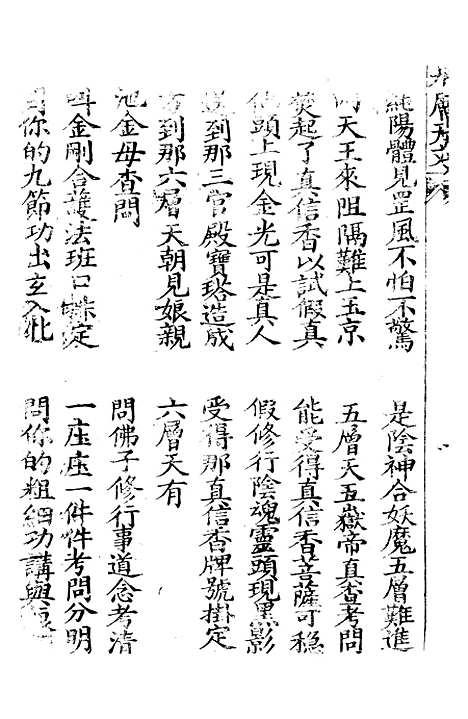 層天
純陽體見罡風不怕不驚　是陰神合妖魔五層難進
天王來阻隔難上玉京　五層天五嶽帝真香考問
焚起了真信香以試假真　能受得真信香菩薩可穩
他頭上現金光可是真人　假修行陰魂靈頭現黑影
送到那三官殿寶珞造成　受得那真信香牌號掛定
方到那六層天朝見娘親　六層天有
池金母查問　問佛子修行事道念考清
叫金剛合護法班口定　一庒庒一件件考問分明
問你的九節功出玄入牝　問你的粗細功講與